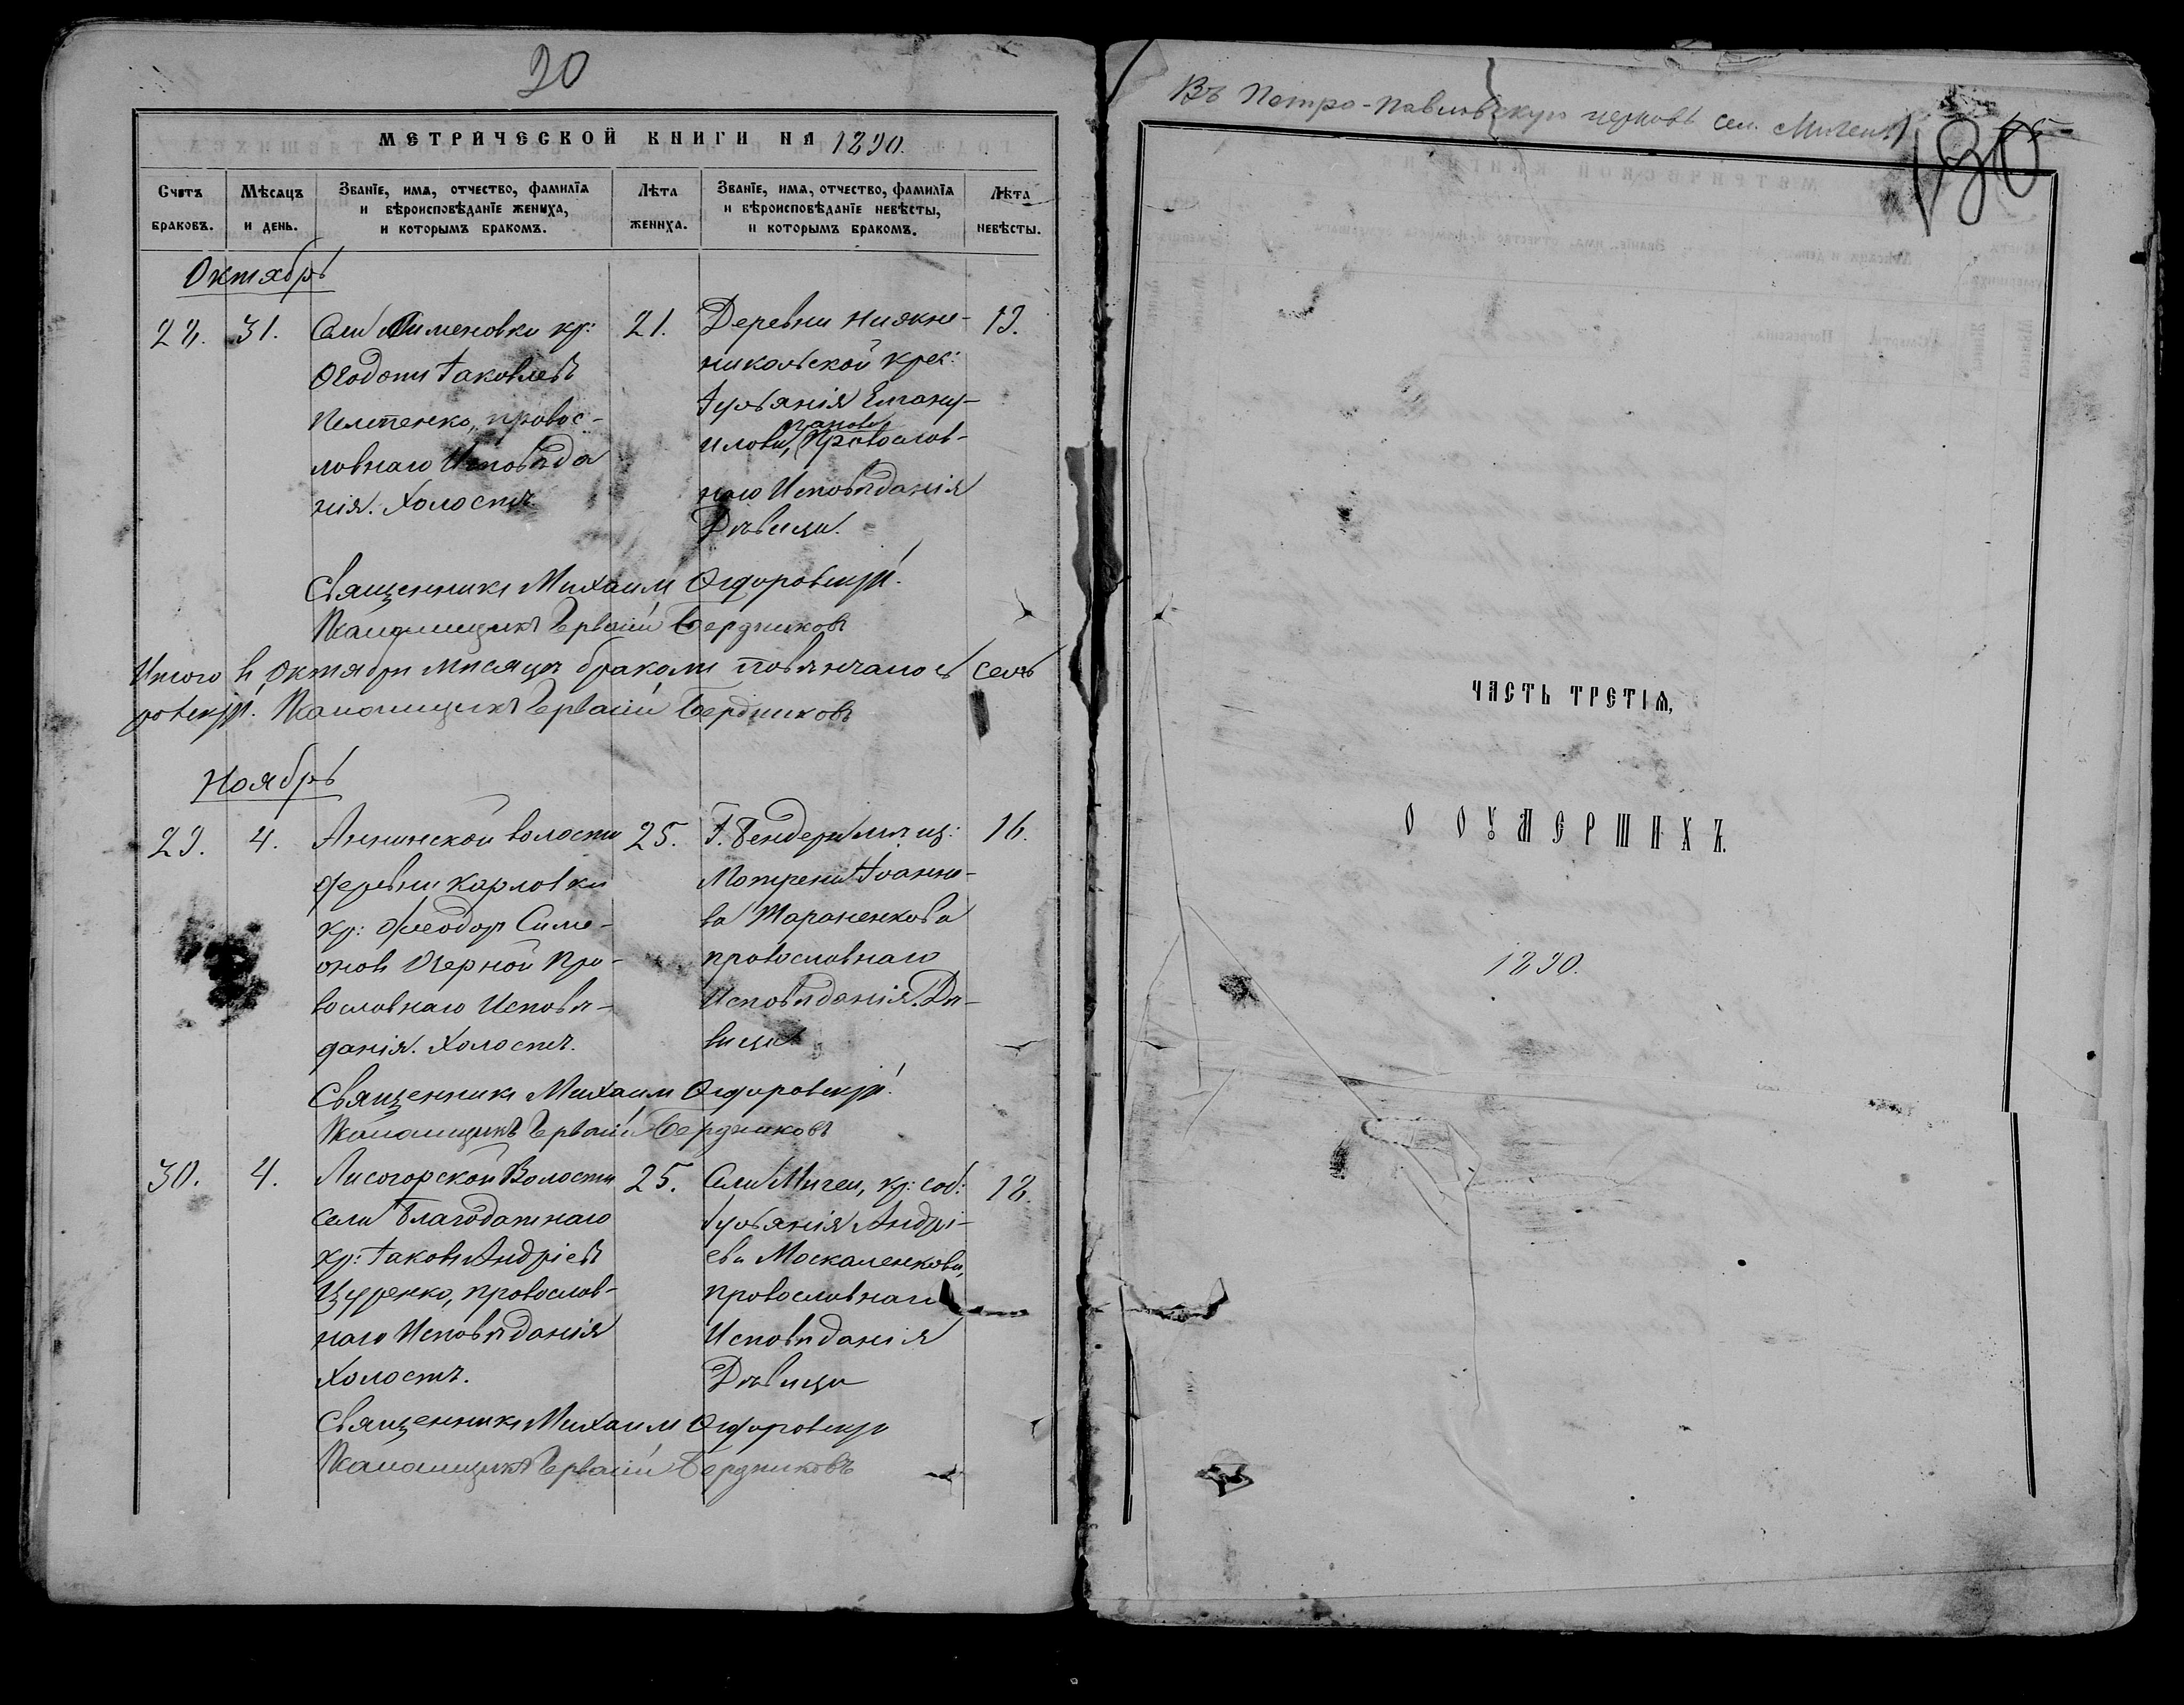 90
МЕТРИЧЕСКОЙ КНИГИ НА 1890.
Счетъ браковъ.
Мѣсяцъ и день.
Званіе, имя, отчество, фамилія и вѣроисповѣданіе жениха, и которымъ бракомъ.
Лѣта жениха.
Званіе, имя, отчество, фамилія и вѣроисповѣданіе невѣсты, и которымъ бракомъ.
Лѣта невѣсты.
Октябрь
28. 31.
Села Сименовки кр:
Ѳеодотъ Іаковлевъ
правос-
лавнаго Исповѣда
нія. Холостъ.
21.
Деревни Нижне-
никольской крес:
Іуліанія Еману-
илова, Православ-
наго Исповѣданія
Дѣвица.
19.
Священникъ Михаилъ Ѳедоровскій
Псаломщикъ Гервасій Бердниковъ
Итого въ Октябрѣ мѣсяцѣ бракомъ повѣнчано
Псаломщикъ Гервасій Бердниковъ
Ноябрь
29. 4.
Аннинской волости
деревни Карловки
кр: Ѳеодоръ Симе-
оновъ Черной Пра-
вославнаго Исповѣ-
данія. Холостъ.
25.
Г. Бендеры мѣщ:
Матрена Іоанно-
ва Тараненкова
православнаго
Исповѣданія. Дѣ-
вица
16.
Священникъ Михаилъ Ѳедоровскій
Псаломщикъ Гервасій Бердниковъ
30. 4.
Лисогорской Волости
села Благодатнаго
кр: Іаковъ Андріевъ
Цуренко, православ-
наго Исповѣданія
Холостъ.
25.
Села Мигеи, кр: соб:
Іуліанія Андрі-
ева Москаленкова,
православнаго
Исповѣданія
Дѣвица
18.
Священникъ Михаилъ Ѳедоровскій
Псаломщикъ Гервасій Бердниковъ
Въ Петро-Павловскую церковь сел. Мигеи
130
ЧАСТЬ ТРЕТІЯ,
О ОУМЕРШИХЪ.
1890.